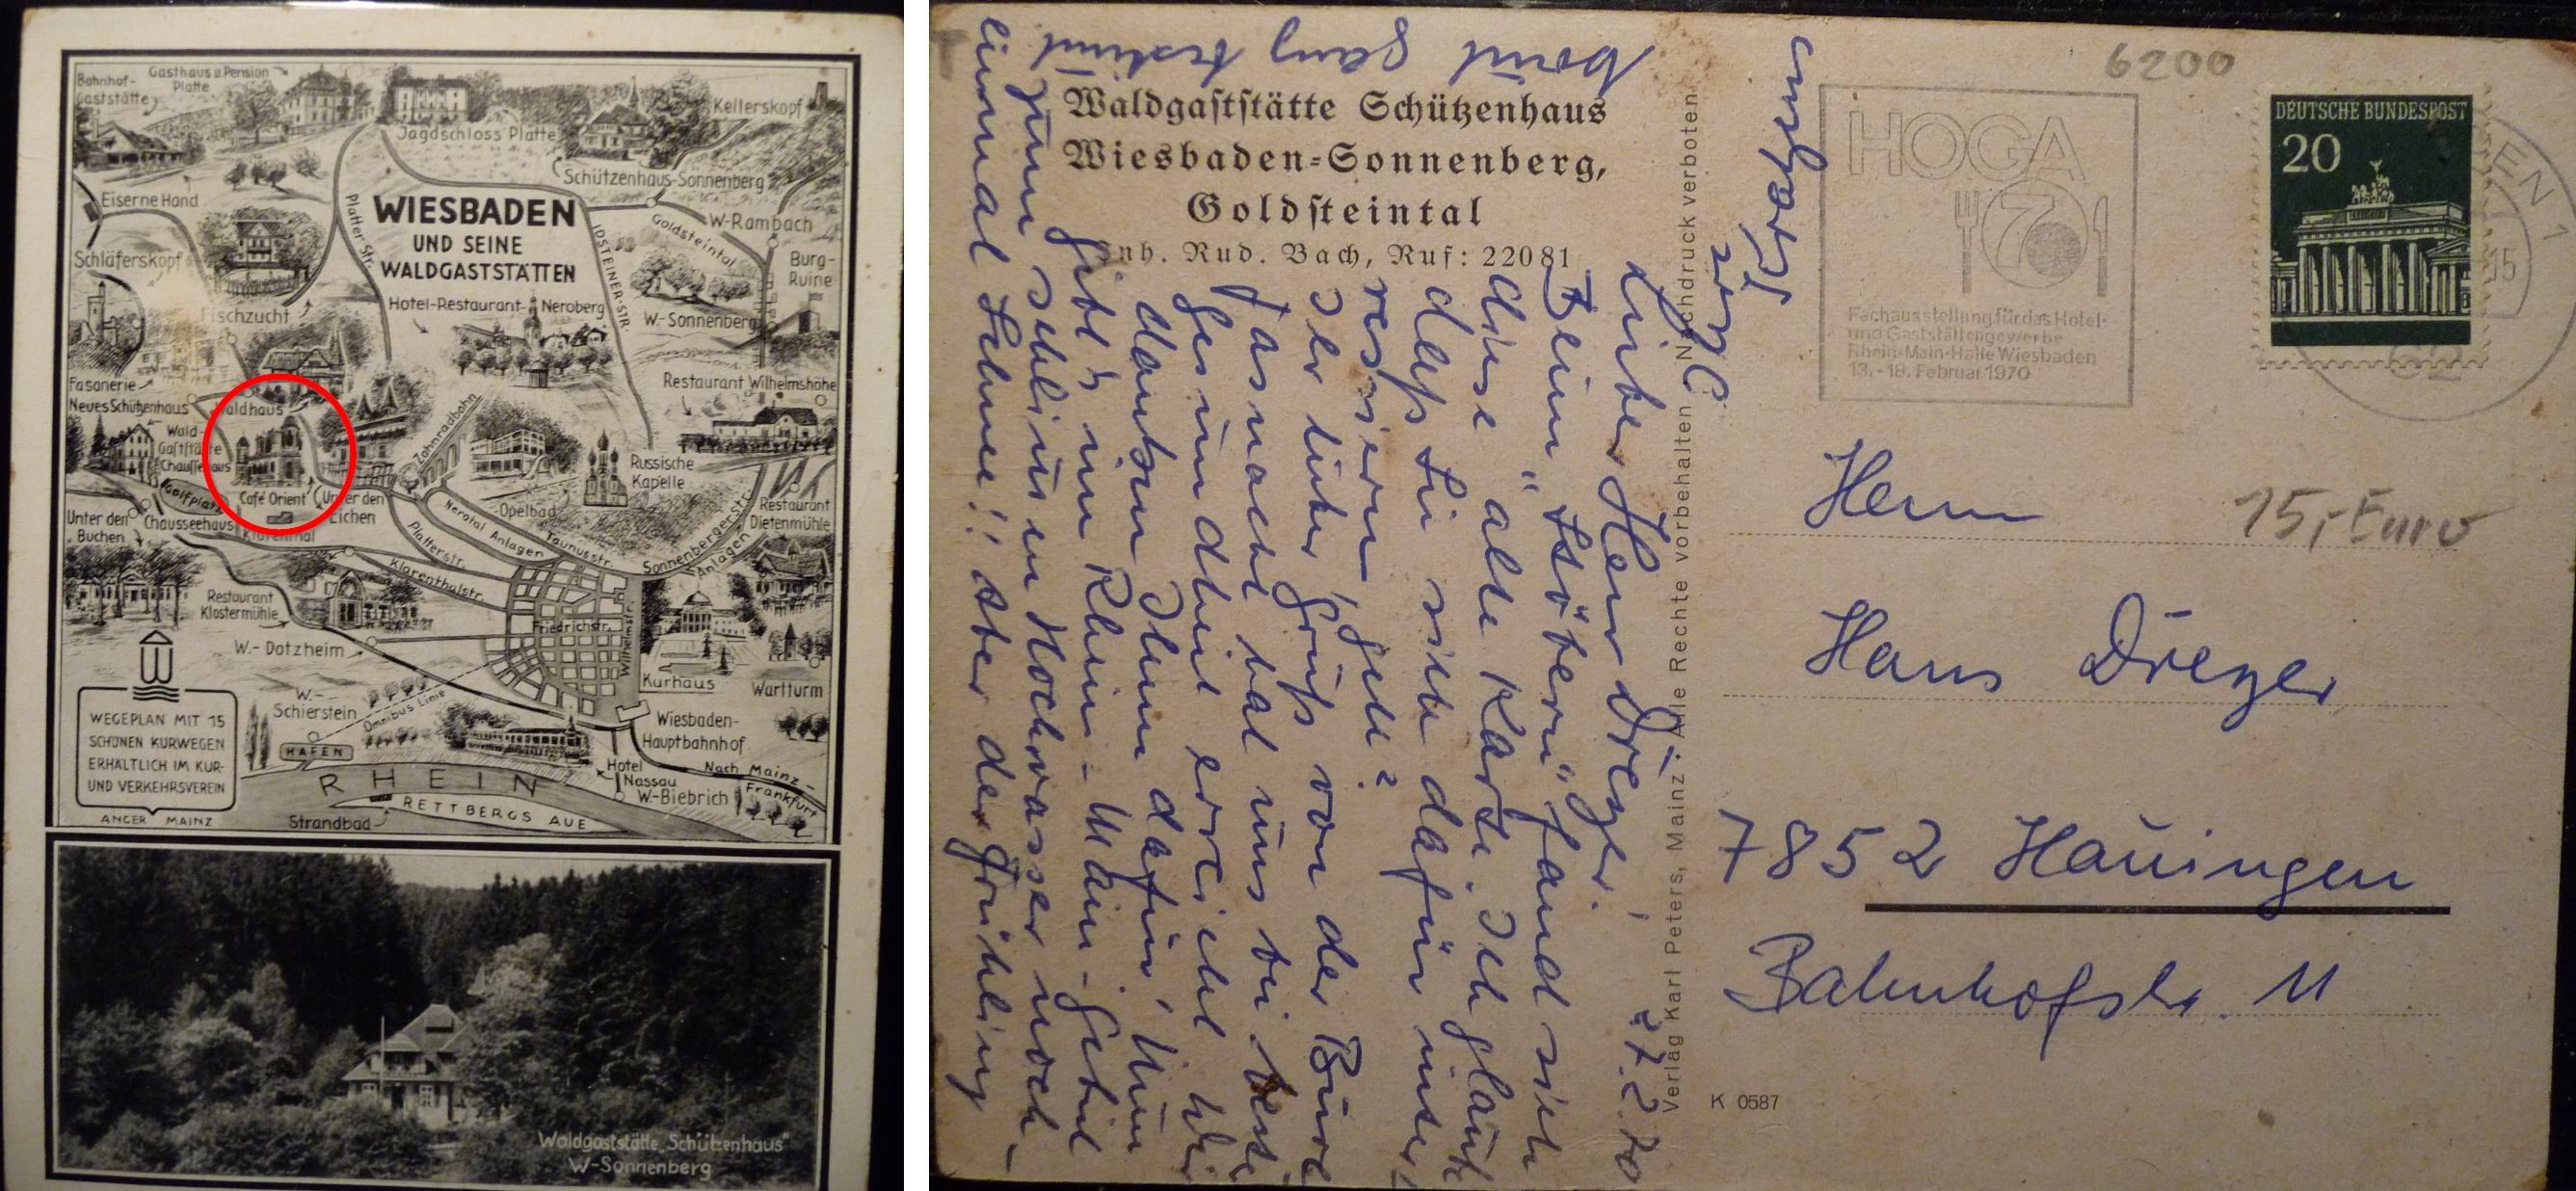 Bahnhof-
Gaststätte
Gasthaus u. Pension
Platte
Jagdschloss Platte
Kellerskopf
Schützenhaus-Sonnenberg
Eiserne Hand
Platter Str.
WIESBADEN
UND SEINE
WALDGASTSTÄTTEN
IDSTEINER-STR.
Goldsteintal
W-Rambach
Burg-
Ruine
Schläferskopf
Fischzucht
Hotel-Restaurant-Neroberg
W.-Sonnenberg
Fasanerie
Restaurant Wilhelmshöhe
Neues Schützenhaus
Waldhaus
Wald-
Gaststätte
Chausseehaus
Zahnradbahn
Russische
Kapelle
Golfplatz
Café Orient
Unter den
Eichen
Opelbad
Restaurant
Dietenmühle
Unter den
Buchen
Chausseehaus
Klarenthal
Platterstr.
Nerotal
Anlagen
Taunusstr.
Sonnenbergerstr.
Anlagen
Klarenthalstr.
Restaurant
Klostermühle
Friedrichstr.
Wilhelmstr.
W.-Dotzheim
Kurhaus
Wartturm
W.-
Schierstein
Omnibus Linie
HAFEN
Wiesbaden-
Hauptbahnhof
WEGEPLAN MIT 15
SCHÖNEN KURWEGEN
ERHÄLTLICH IM KUR-
UND VERKEHRSVEREIN
ANGER MAINZ
RHEIN
Hotel
Nassau
W-Biebrich
Nach Mainz-
Frankfurt
RETTBERGS AUE
Strandbad
Waldgaststätte „Schützenhaus"
W-Sonnenberg
Waldgaststätte Schützenhaus
Wiesbaden-Sonnenberg,
Goldsteintal
Inh. Rud. Bach, Ruf: 22081
27.2.70
Lieber Herr Dreyer!
Beim "Stöbern" fand sich
diese alte Karte. Ich glaube
daß Sie sich dafür inter-
essieren, gell?
Der liebe Gruß von der Büre
Fasnacht hat uns bei bester
Gesundheit erreicht. Wir
danken Ihnen dafür! Nun
gibt's im Rhein-Main-Gebiet
zum Schluss Hochwasser noch-
einmal Schnee! Aber der Frühling
kommt ganz bestimmt!
Verlag Karl Peters, Mainz · Alle Rechte vorbehalten · Nachdruck verboten
K 0587
6200
HOGA
70
Fachausstellung für das Hotel-
und Gaststättengewerbe
Rhein-Main-Halle Wiesbaden
13.-18. Februar 1970
DEUTSCHE BUNDESPOST
20
15
Herrn
15,- Euro
Hans Dreyer
7852 Hauingen
Bahnhofstr. 11